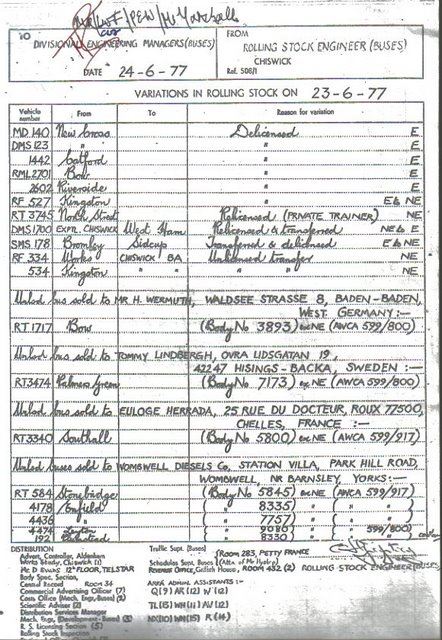 DIVISIONAL ENGINEERING MANAGERS (BUSES)
DATE 24-6-77
FROM
ROLLING STOCK ENGINEER (BUSES)
CHISWICK
Ref. 508/1
VARIATIONS IN ROLLING STOCK ON 23-6-77
Vehicle number From To Reason for variation
MD 140 New Cross Delicensed E
DMS 123 " " E
1442 Catford " E
RML 2701 Bow " E
2602 Riverside " E
RF 527 Kingston " E to NE
RT 3745 North Street Relicensed (PRIVATE TRAINER) NE
DMS1700 EXPTL. CHISWICK West Ham Relicensed & transferred NE to E
SMS 178 Bromley Sidcup Transferred & delicensed E to NE
RF 334 Works CHISWICK BA Unlicensed transfer NE
534 Kingston " " " " NE
Unlcd bus sold to MR H. WERMUTH, WALDSEE STRASSE 8, BADEN-BADEN,
WEST GERMANY :—
RT 1717 Bow (Body No 3893) ex NE (AWCA 599/800)
Unlcd bus sold to TOMMY LINDBERGH, OVRA LIDSGATAN 19,
42247 HISINGS-BACKA, SWEDEN :—
RT3474 Palmers Green (Body No 7173) ex NE (AWCA 599/800)
Unlcd bus sold to EULOGE HERRADA, 25 RUE DU DOCTEUR, ROUX 77500,
CHELLES, FRANCE :—
RT3340 Southall (Body No 5800) ex NE (AWCA 599/917)
Unlcd buses sold to WOMBWELL DIESELS Co, STATION VILLA, PARK HILL ROAD,
WOMBWELL, NR BARNSLEY, YORKS :—
RT 584 Stonebridge (Body No 5845) ex NE (AWCA 599/917)
4178 Enfield ( 8335) " ( " )
4436 " ( 7757) " ( " )
4474 Leyton ( 9080) " ( 599/800)
192 Plumstead ( 8330) " ( " )
DISTRIBUTION
Advert. Controller, Aldenham
Works Study, Chiswick (1)
Mr D Evans 12th FLOOR, TELSTAR
Body Spec. Section,
Central Record ROOM 34
Commercial Advertising Officer (7)
Costs Office (Mech. Engr., Buses) (2)
Scientific Adviser (2)
Distribution Services Manager
Mech. Engr. (Development-Buses) (3)
R. S. Licensing Section (5)
Rolling Stock Inspection
Traffic Supt. (Buses)
ROOM 283, PETTY FRANCE
Schedules Supt. Buses (Attn. of Mr Hyde)
Premises Office, Griffith House, ROOM 432 (2)
AREA ADMIN ASSISTANTS :-
Q (9) AR (12) W (12)
TL (15) WH (11) AV (12)
NX (10) WN (15) R (14)
ROLLING STOCK ENGINEER (BUSES)